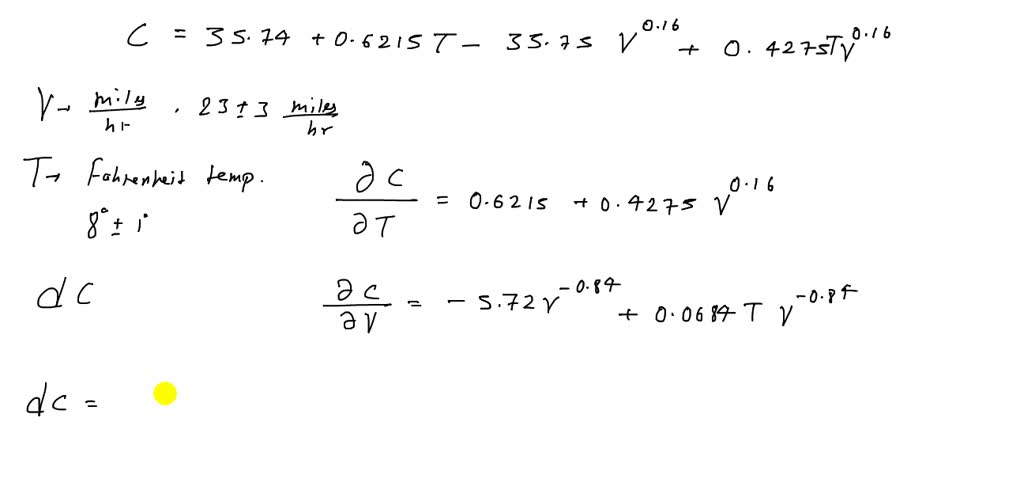 C = 35.74 + 0.6215 T - 35.75 V^0.16 + 0.4275 T V^0.16
V → miles/hr . 23 ± 3 miles/hr
T → Fahrenheit temp.
8° ± 1°
∂C/∂T = 0.6215 + 0.4275 V^0.16
dC
∂C/∂V = - 5.72 V^-0.84 + 0.0684 T V^-0.84
dC =